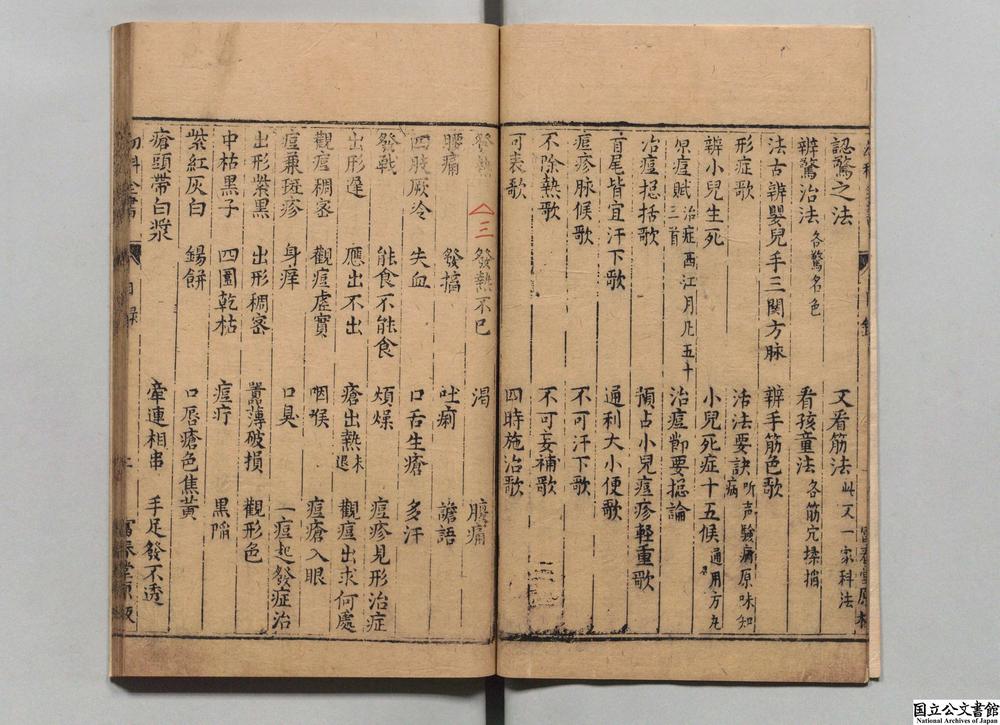 認驚之法 又看筋法 此又一家科法
辨驚治法 各驚名色 看孩童法 各筋穴揉搯
法古辨嬰兒手三関方脉 辨手筋色歌
形症歌 活法要訣 听声驗病原味知病
辨小兒生死 小兒死症十五候 通用方九
原痘賦 治症西江月凡五十三首 治痘節要揔論
治痘揔括歌 預占小兒痘疹輕重歌
首尾皆宜汗下歌 通利大小便歌
痘疹脉候歌 不可汗下歌
不除熱歌 不可妄補歌
可表歌 四時施治歌
發熱 三 發熱不已 渴 腹痛
腰痛 發搐 吐痢 譫語
四肢厥冷 失血 口舌生瘡 多汗
發戰 能食不能食 煩燥 痘疹見形治症
出形遲 應出不出 瘡出熱未退 觀痘出求何處
觀痘稠宻 觀痘虛實 咽喉 痘瘡入眼
痘兼斑疹 身痒 口臭 一痘起發症治
出形紫黑 出形稠宻 薄破損 觀形色
中枯黑子 四圍乾枯 痘疔 黒陷
紫紅灰白 錫餅 口唇瘡色焦黃
瘡頭帶白漿 牽連相串 手足發不透
幼科全書 目録 二 富春堂原板
国立公文書館
National Archives of Japan